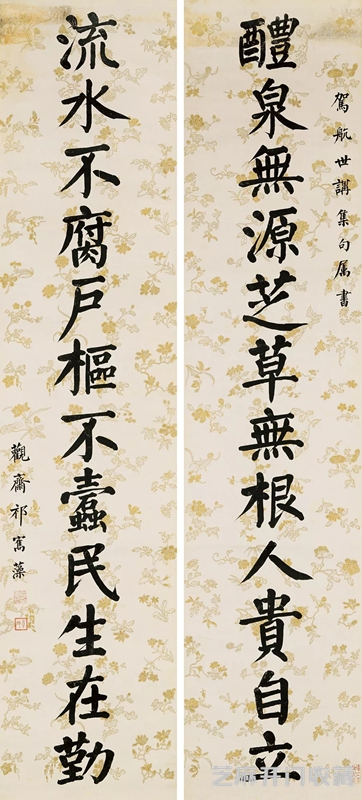 駕航世講集句属書
醴泉無源芝草無根人貴自立
流水不腐戶樞不蠹民生在勤
觀齋祁寯藻